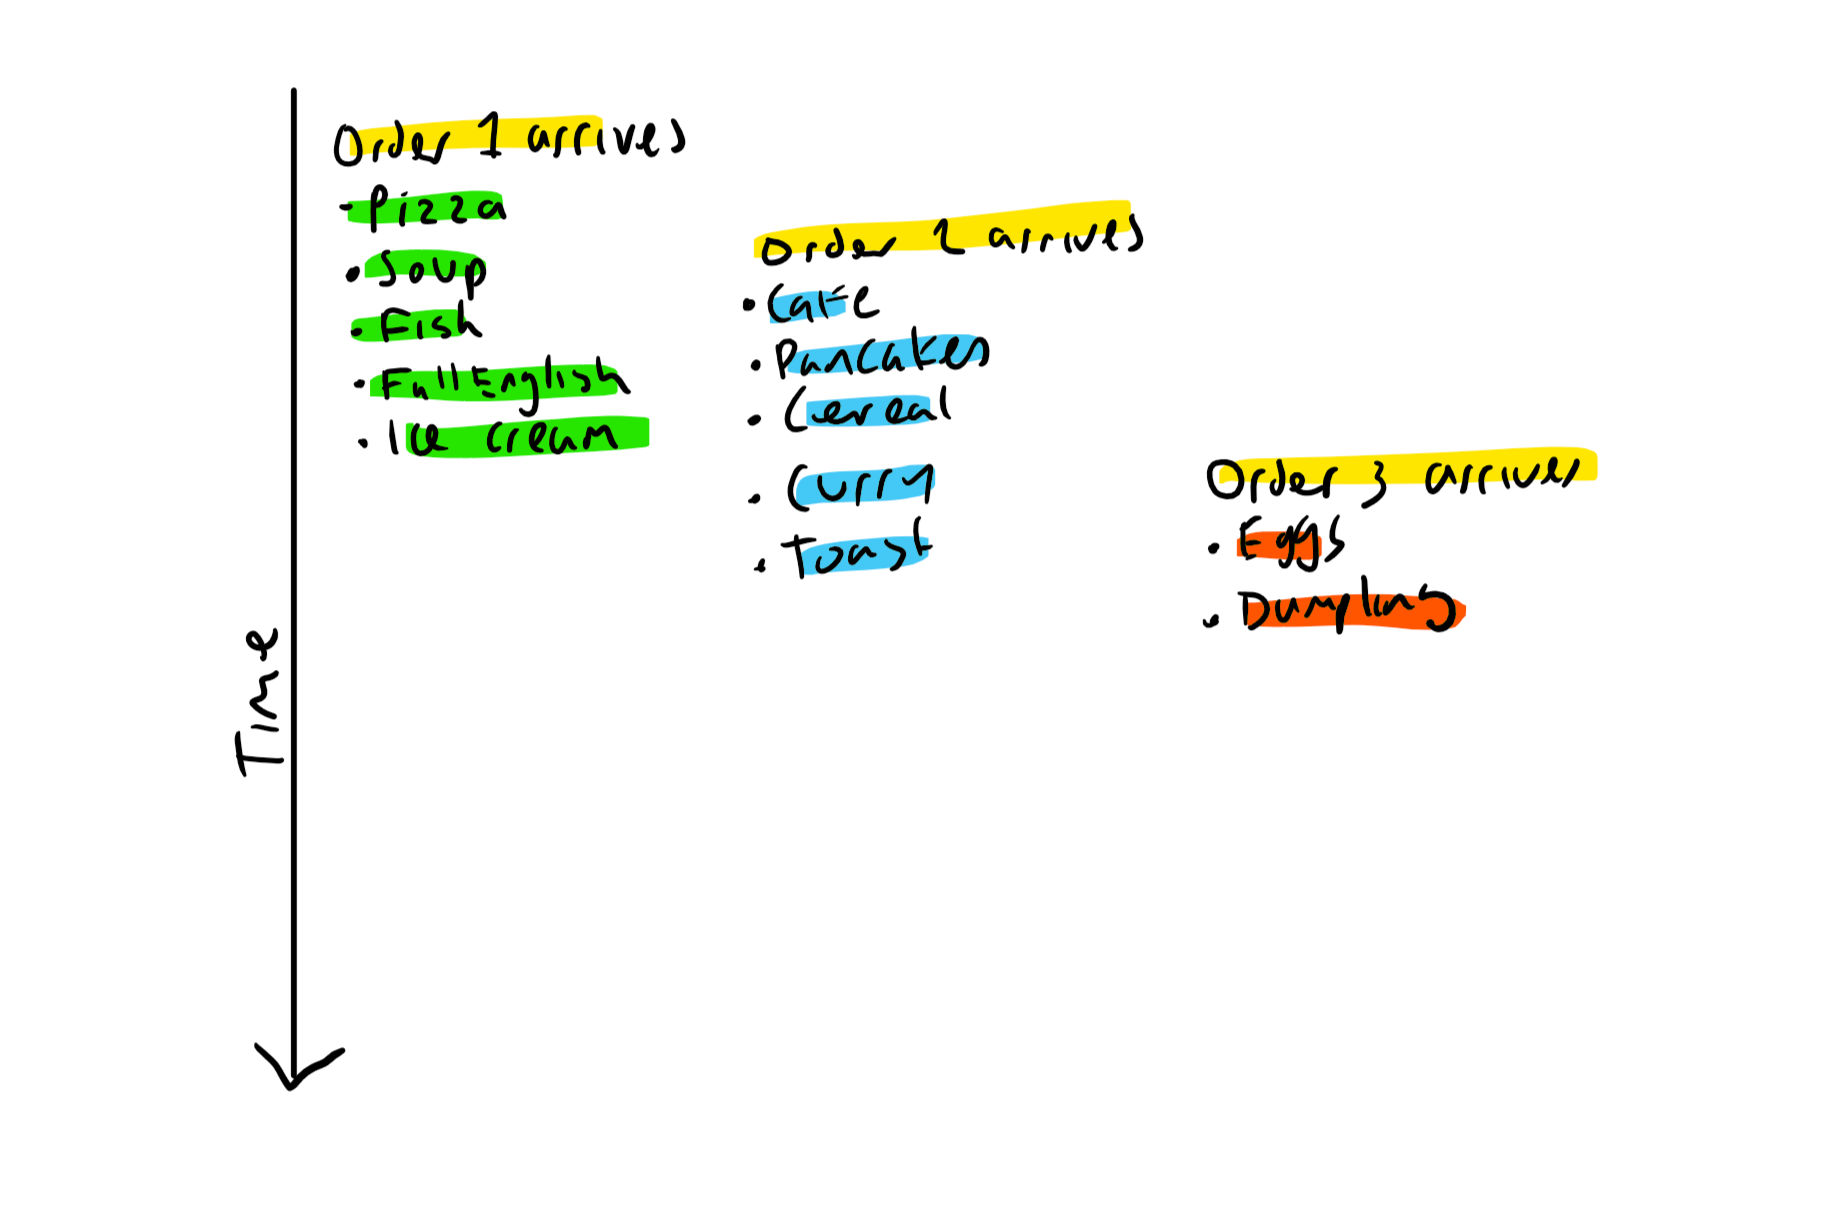 Order 1 arrives
- Pizza
• Soup
• Fish
• Full English
• Ice cream
Order 2 arrives
• Cake
• Pancakes
• Cereal
• Curry
• Toast
Order 3 arrives
• Eggs
• Dumpling
Time